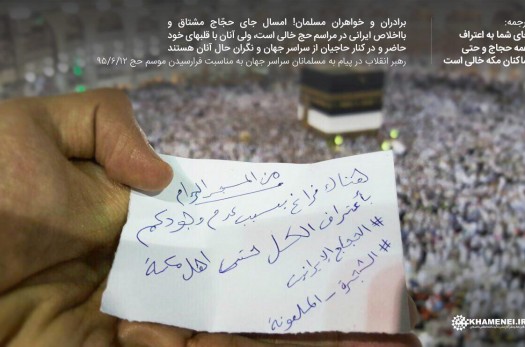 برادران و خواهران مسلمان! امسال جای حجّاج مشتاق و
بااخلاص ایرانی در مراسم حج خالی است، ولی آنان با قلبهای خود
حاضر و در کنار حاجیان از سراسر جهان و نگران حال آنان هستند
رهبر انقلاب در پیام به مسلمانان سراسر جهان به مناسبت فرارسیدن موسم حج ۹۵/۶/۱۲
رجمه:
جای شما به اعتراف
همه حجاج و حتی
ساکنان مکه خالی است
من المسجد الحرام
هناك فراغ بسبب عدم وجودكم
بأعتراف الكل حتى اهل مكة
#الحجاج_الايرانيين
#الشجرة_الملعونة
KHAMENEI.IR